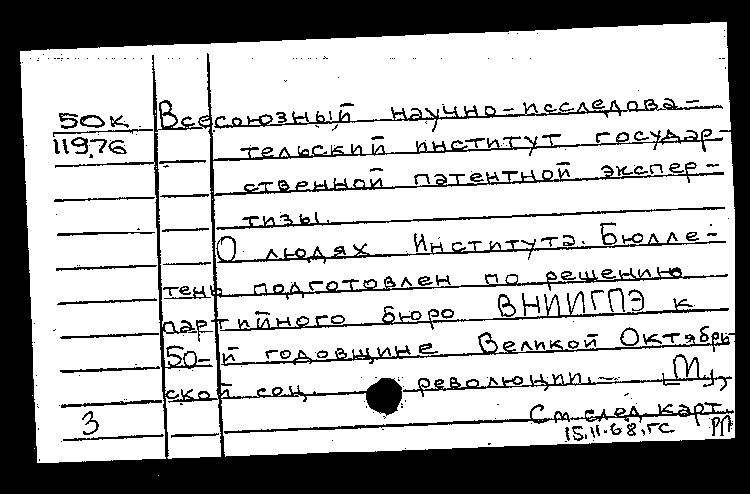 50к Всесоюзный научно-исследова-
11976 тельский институт государ-
ственной патентной экспер-
тизы.
О людях Института. Бюлле-
тень подготовлен по решению
партийного бюро ВНИИГПЭ к
50-й годовщине Великой Октябрь-
ской соц. революции. – [М.],
3 См. след. карт.
15.11.68, гс РП